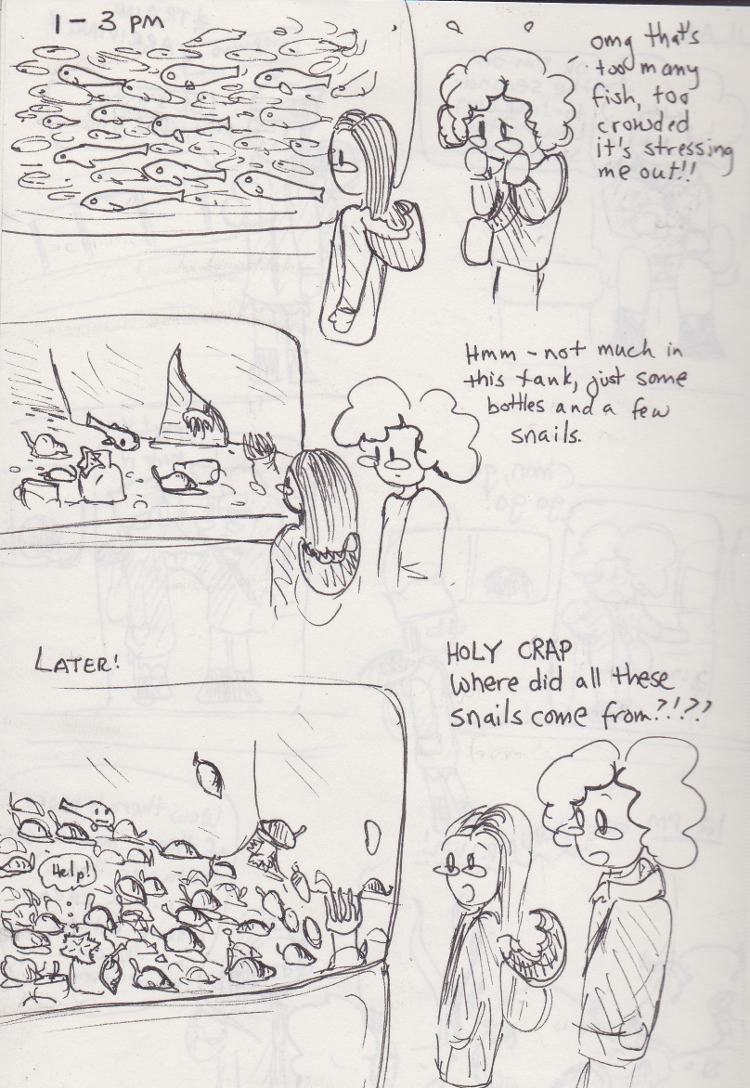 1 - 3 PM
omg that's
too many
fish, too
crowded
it's stressing
me out!!
Hmm - not much in
this tank, just some
bottles and a few
snails.
LATER!
HOLY CRAP
Where did all these
snails come from?!??
Help!